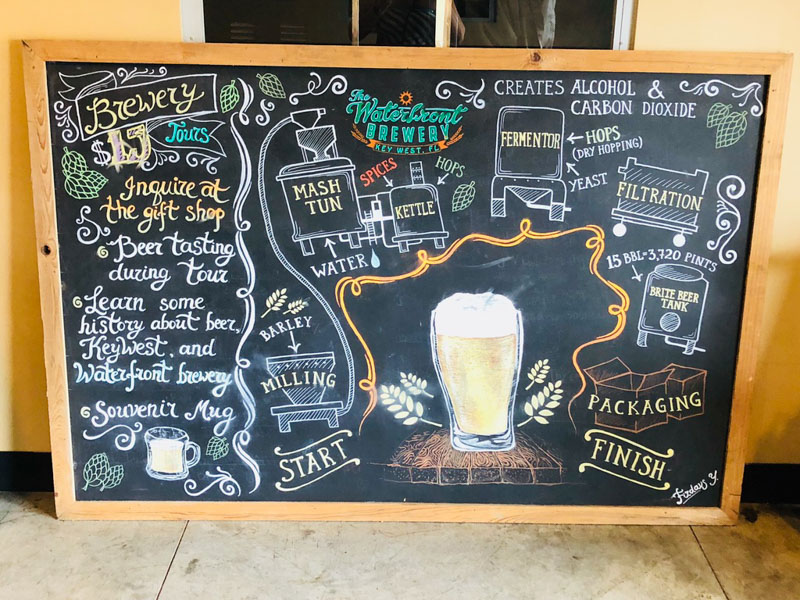 Brewery
$
Tours
Inquire at
the gift shop
Beer tasting
during tour
Learn some
history about beer,
Key West, and
Waterfront brewery
Souvenir Mug
The
Waterfront
BREWERY
KEY WEST, FL
MASH
TUN
SPICES
HOPS
KETTLE
WATER
BARLEY
MILLING
START
CREATES ALCOHOL &
CARBON DIOXIDE
FERMENTOR
HOPS
(DRY HOPPING)
YEAST
FILTRATION
15 BBL=3,720 PINTS
BRITE BEER
TANK
PACKAGING
FINISH